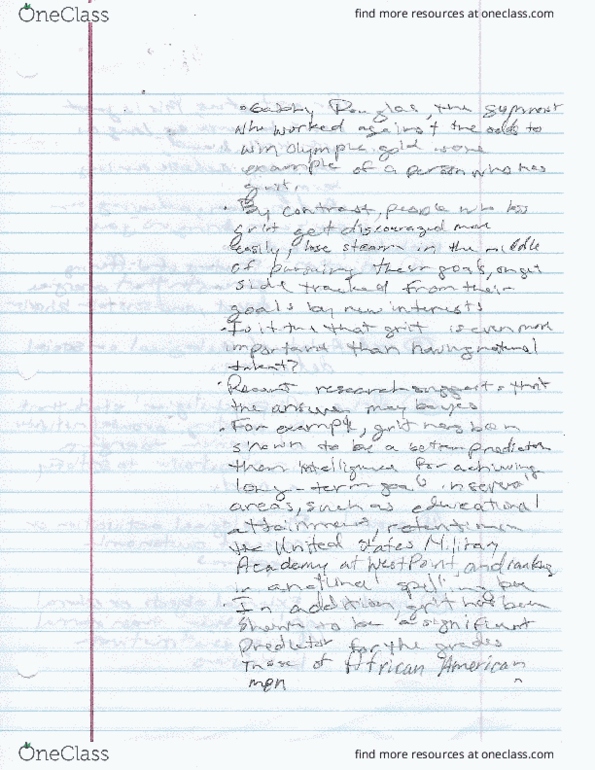 OneClass
find more resources at oneclass.com
• Gabby Douglas, the gymnast
who worked against the odds to
win Olympic gold is one
example of a person who has
grit.
• By contrast, people who less
grit get discouraged more
easily, lose steam in the middle
of pursuing their goals, or get
side tracked from their
goals by new interests
• Is it true that grit is even more
important than having natural
talent?
• Recent research suggests that
the answer may be yes
• For example, grit has been
shown to be a better predictor
than intelligence for achieving
long-term goals in several
areas, such as educational
attainment, retention in
the United States Military
Academy at West Point, and ranking
in a national spelling bee
• In addition, grit has been
shown to be a significant
predictor for the grades
those of African American
men
OneClass
find more resources at oneclass.com